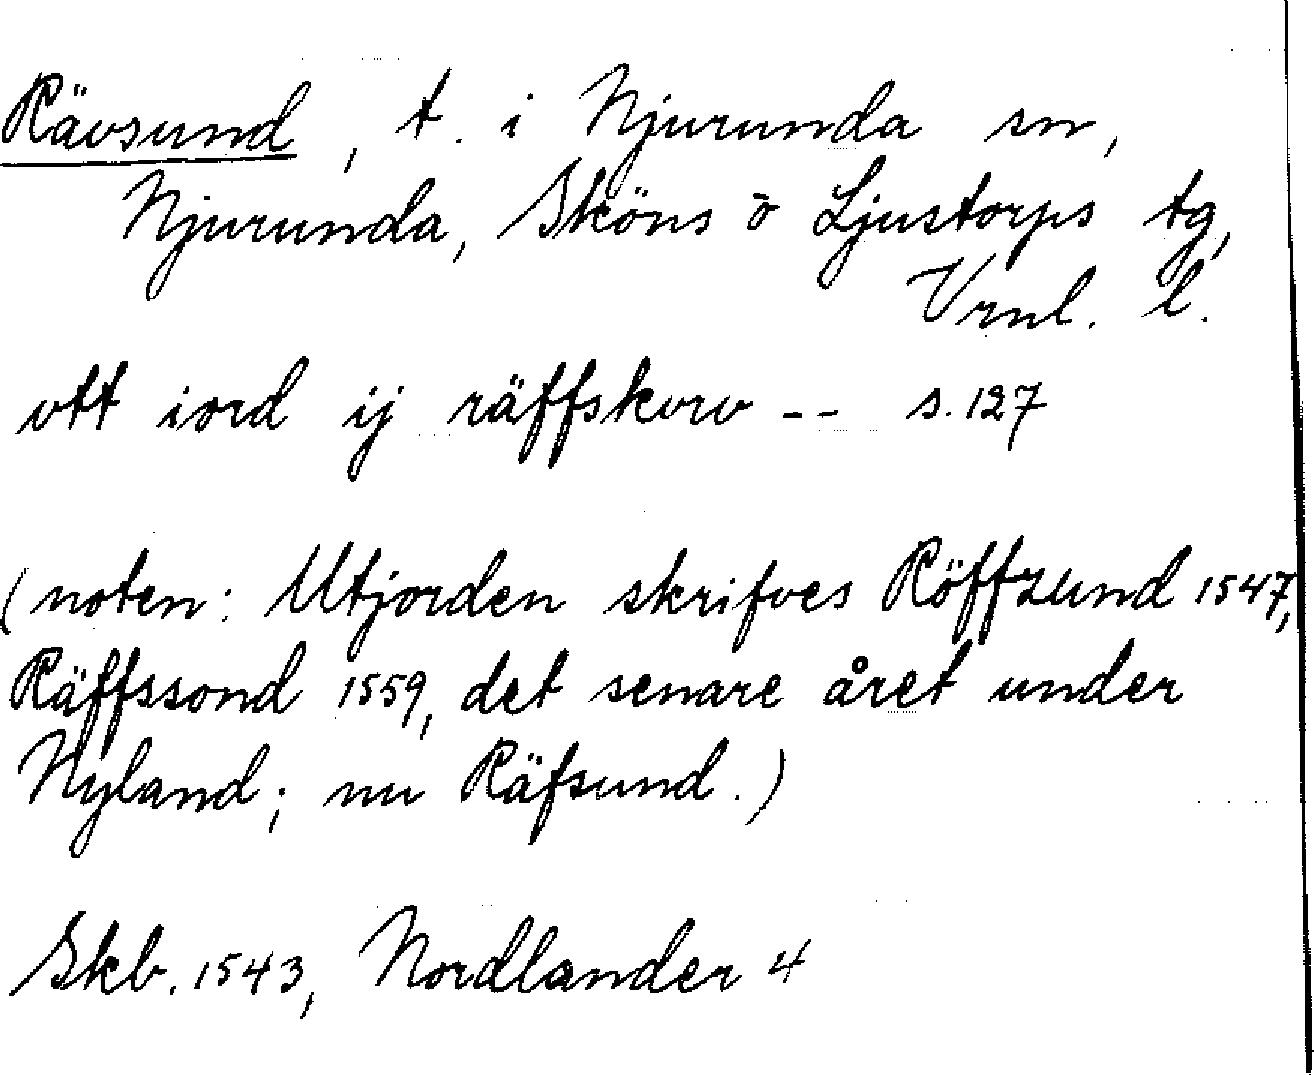 Rävsund, t. i Njurunda sn,
Njurunda, Sköns o Ljustorps tg,
Vrnl. l.
vtt iord ij räffskorv -- s. 127
(noten: Utjorden skrifves Röffzund 1547,
Räffssond 1559, det senare året under
Nyland; nu Räfsund.)
Skb. 1543, Nordlander 4